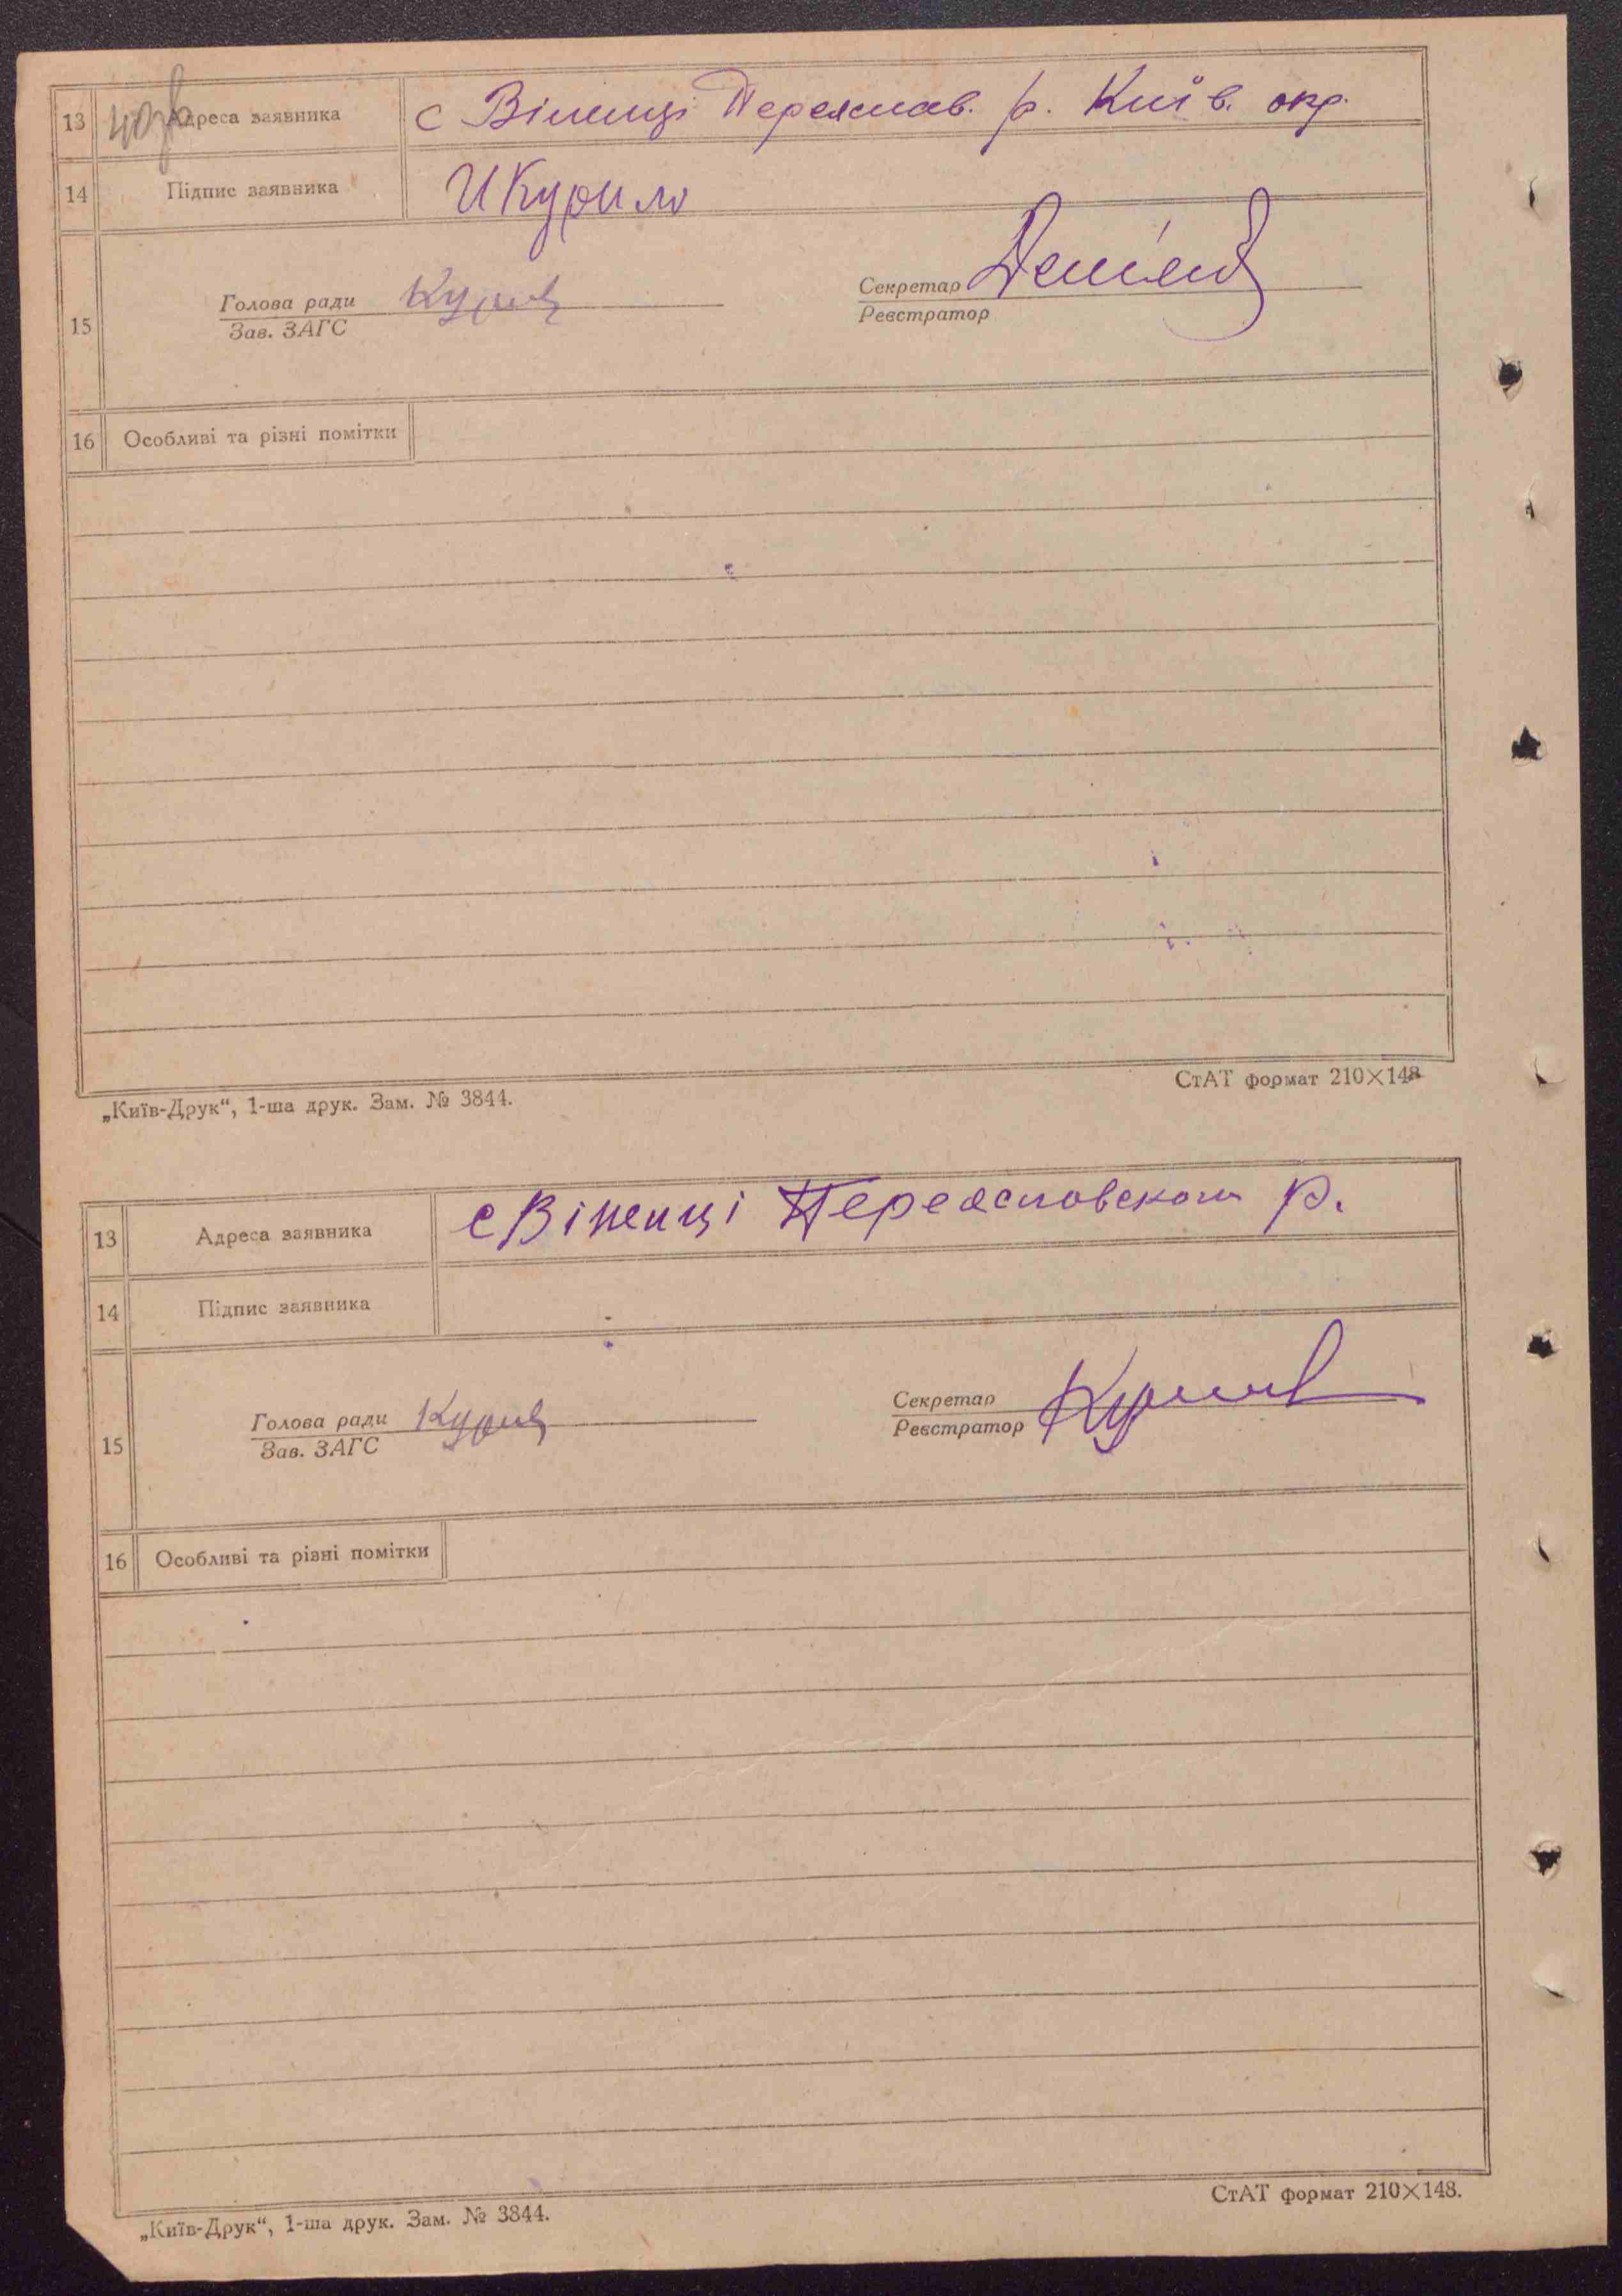 13 40зв Адреса заявника с Віненці Переяслав. р. Київ. окр.
14 Підпис заявника И Курило
15 Голова ради Секретар
Зав. ЗАГС Реєстратор
16 Особливі та різні помітки
„Київ-Друк“, 1-ша друк. Зам. № 3844. СтАТ формат 210×148
13 Адреса заявника с Віненці Переясловского р.
14 Підпис заявника
15 Голова ради Секретар
Зав. ЗАГС Реєстратор
16 Особливі та різні помітки
„Київ-Друк“, 1-ша друк. Зам. № 3844. СтАТ формат 210×148.